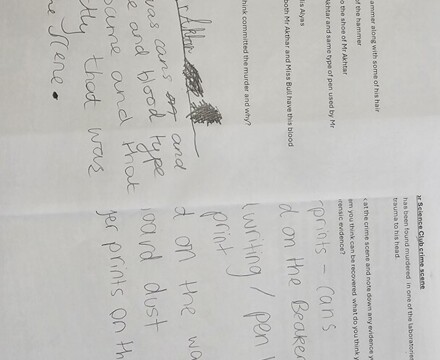 ammer along with some of his hair
of the hammer
o the shoe of Mr Akhtar
Akhtar and same type of pen used by Mr
lis Alyas
both Mr Akthar and Miss Bull have this blood
hink committed the murder and why?
r Akhtar
was cans and
e and blood type
same and that
tly that was
he scene.
Science Club crime scene
has been found murdered in one of the laboratorie
trauma to his head.
at the crime scene and note down any evidence y
em you think can be recovered what do you think y
rensic evidence?
rprints - cans
d on the Beaker
writing / pen
print
d on the wa
oard dust
er prints on th